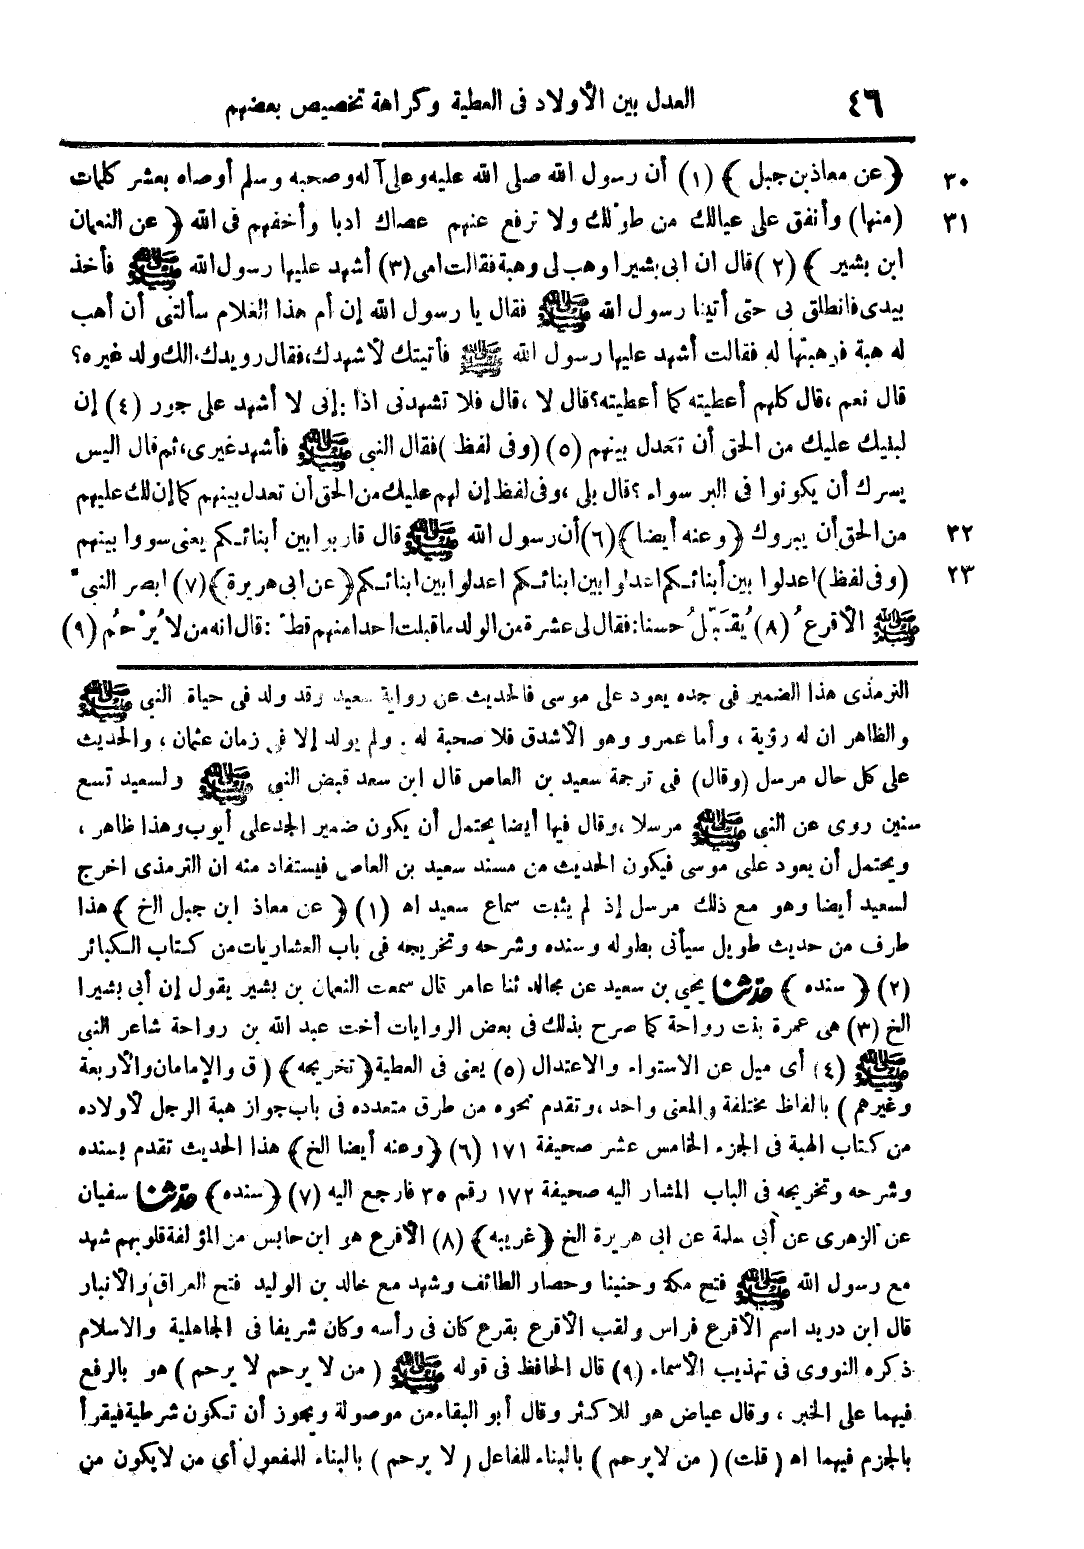 ٤٦ العدل بين الأولاد فى العطية وكراهة تخصيص بعضهم
٣٠ ﴿عن معاذ بن جبل﴾ (١) أن رسول الله صلى الله عليه وعلى آله وصحبه وسلم أوصاه بعشر كلمات
٣١ (منها) وأنفق على عيالك من طولك ولا ترفع عنهم عصاك ادبا وأخفهم فى الله ﴿عن النعمان
ابن بشير﴾ (٢) قال ان ابى بشيرا وهب لى وهبة فقالت امى (٣) أشهد عليها رسول الله ﷺ فأخذ
بيدى فانطلق بى حتى أتينا رسول الله ﷺ فقال يا رسول الله إن أم هذا الغلام سألتنى أن أهب
له هبة فوهبتها له فقالت أشهد عليها رسول الله ﷺ فأتيتك لأشهدك، فقال رويدك، الك ولد غيره؟
قال نعم، قال كلهم أعطيته كما أعطيته؟ قال لا، قال فلا تشهدنى اذا: إنى لا أشهد على جور (٤) إن
لبنيك عليك من الحق أن تعدل بينهم (٥) (وفى لفظ) فقال النبى ﷺ فأشهد غيرى، ثم قال اليس
يسرك أن يكونوا فى البر سواء؟ قال بلى، وفى لفظ إن لهم عليك من الحق أن تعدل بينهم كما إن لك عليهم
٣٢ من الحق أن يبروك ﴿وعنه أيضا﴾ (٦) أن رسول الله ﷺ قال قاربوا بين أبنائكم يعنى سووا بينهم
٢٣ (وفى لفظ) اعدلوا بين أبنائكم اعدلوا بين ابنائكم اعدلوا بين ابنائكم ﴿عن ابى هريرة﴾ (٧) ابصر النبى
ﷺ الأقرعُ (٨) يُقَبِّلُ حسنا: فقال لى عشرة من الولد ما قبلت احدا منهم قط: قال انه من لا يُرْحم يُرْحُم (٩)
الترمذى هذا الضمير فى جده يعود على موسى فالحديث عن رواية سعيد وقد ولد فى حياة النبى ﷺ
والظاهر ان له رؤية، وأما عمرو وهو الأشدق فلا صحبة له، ولم يولد إلا فى زمان عثمان، والحديث
على كل حال مرسل (وقال) فى ترجمة سعيد بن العاص قال ابن سعد قبض النبى ﷺ ولسعيد تسع
سنين روى عن النبى ﷺ مرسلا، وقال فيها أيضا يحتمل أن يكون ضمير الجد على أيوب وهذا ظاهر،
ويحتمل أن يعود على موسى فيكون الحديث من مسند سعيد بن العاص فيستفاد منه ان الترمذى اخرج
لسعيد أيضا وهو مع ذلك مرسل إذ لم يثبت سماع سعيد اه (١) ﴿عن معاذ ابن جبل الخ﴾ هذا
طرف من حديث طويل سيأتى بطوله وسنده وشرحه وتخريجه فى باب العشاريات من كتاب الكبائر
(٢) ﴿سنده﴾ حدثنا يحيى بن سعيد عن مجالد ثنا عامر قال سمعت النعمان بن بشير يقول إن أبي بشيرا
الخ (٣) هى عمرة بنت رواحة كما صرح بذلك فى بعض الروايات أخت عبد الله بن رواحة شاعر النبى
ﷺ (٤) أى ميل عن الاستواء والاعتدال (٥) يعنى فى العطية ﴿تخريجه﴾ (ق والإمامان والأربعة
وغيرهم) بالفاظ مختلفة والمعنى واحد، وتقدم نحوه من طرق متعدده فى باب جواز هبة الرجل لأولاده
من كتاب الهبة فى الجزء الخامس عشر صحيفة ١٧١ (٦) ﴿وعنه أيضا الخ﴾ هذا الحديث تقدم بسنده
وشرحه وتخريجه فى الباب المشار اليه صحيفة ١٧٢ رقم ٣٥ فارجع اليه (٧) ﴿سنده﴾ حدثنا سفيان
عن الزهرى عن أبي سلمة عن ابى هريرة الخ ﴿غريبه﴾ (٨) الأقرع هو ابن حابس من المؤلفة قلوبهم شهد
مع رسول الله ﷺ فتح مكة وحنينا وحصار الطائف وشهد مع خالد بن الوليد فتح العراق والأنبار
قال ابن دريد اسم الأقرع فراس ولقب الأقرع بقرع كان فى رأسه وكان شريفا فى الجاهلية والاسلام
ذكره النووى فى تهذيب الأسماء (٩) قال الحافظ فى قوله ﷺ (من لا يرحم لا يرحم) هو بالرفع
فيهما على الخبر، وقال عياض هو للاكثر وقال أبو البقاء من موصولة ويجوز أن تكون شرطية فيقرأ
بالجزم فيهما اه (قلت) (من لا يرحم) بالبناء للفاعل (لا يرحم) بالبناء للمفعول أي من لا يكون من